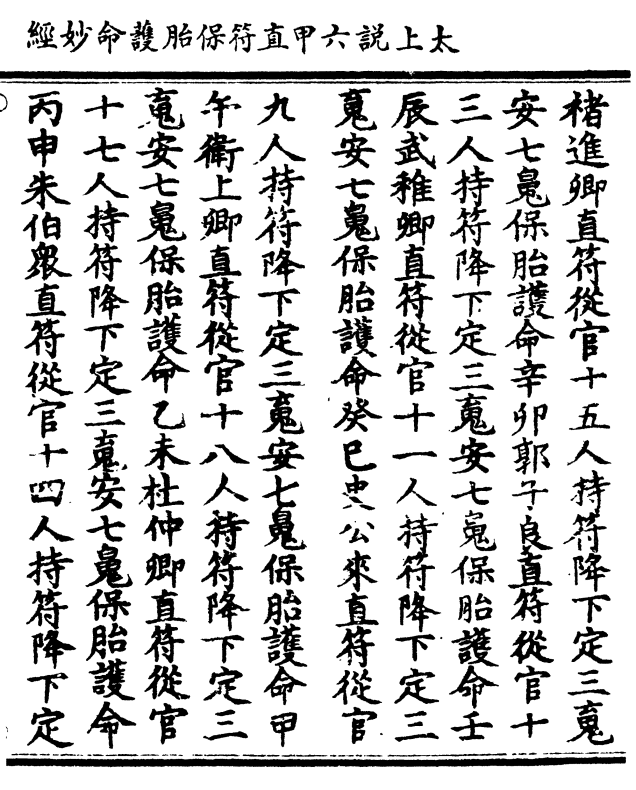 太上說六甲直符保胎護命妙經
楮進卿直符從官十五人持符降下定三魂
安七魄保胎護命辛卯郭子良直符從官十
三人持符降下定三魂安七魄保胎護命壬
辰武稚卿直符從官十一人持符降下定三
魂安七魄保胎護命癸巳史公來直符從官
九人持符降下定三魂安七魄保胎護命甲
午衛上卿直符從官十八人持符降下定三
魂安七魄保胎護命乙未杜仲卿直符從官
十七人持符降下定三魂安七魄保胎護命
丙申朱伯眾直符從官十四人持符降下定